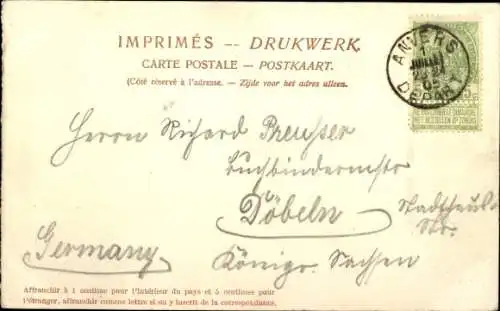 IMPRIMÉS -- DRUKWERK.
CARTE POSTALE -- POSTKAART.
(Côté réservé à l'adresse. - Zijde voor het adres alleen.
ANVERS
1
JUILLET
DEPART
NE PAS LIVRER LE DIMANCHE
NIET BESTELLEN OP ZONDAG
Herrn Richard Preusser
Buchbindermstr
Döbeln
Str.
Germany
Königr. Sachsen
Affranchir à 1 centime pour l'intérieur du pays et 5 centimes pour
l'étranger, affranchir comme lettre si on y inscrit de la correspondance.